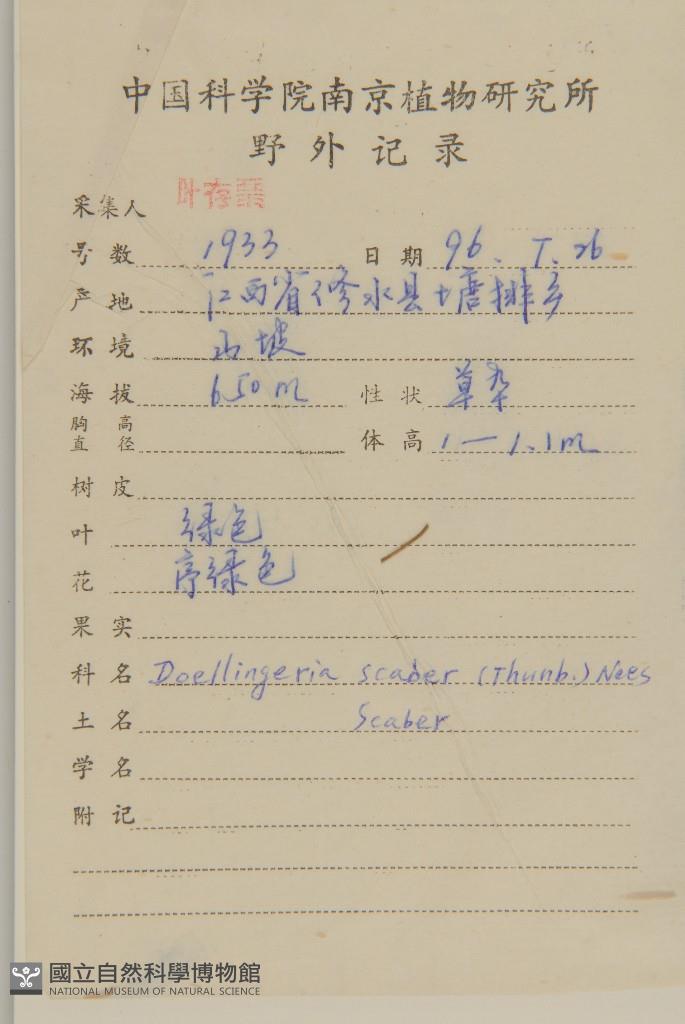 中国科学院南京植物研究所
野外记录
采集人 叶存粟
号数 1933 日期 96.
产地 江西省修水县塘排乡
环境 山坡
海拔 650m 性状 草本
胸高直径 体高 1—1.1m
树皮
叶 绿色
花 绿色
果实
科名 Doellingeria scaber (Thunb.) Nees
土名 Scaber
学名
附记
國立自然科學博物館
NATIONAL MUSEUM OF NATURAL SCIENCE